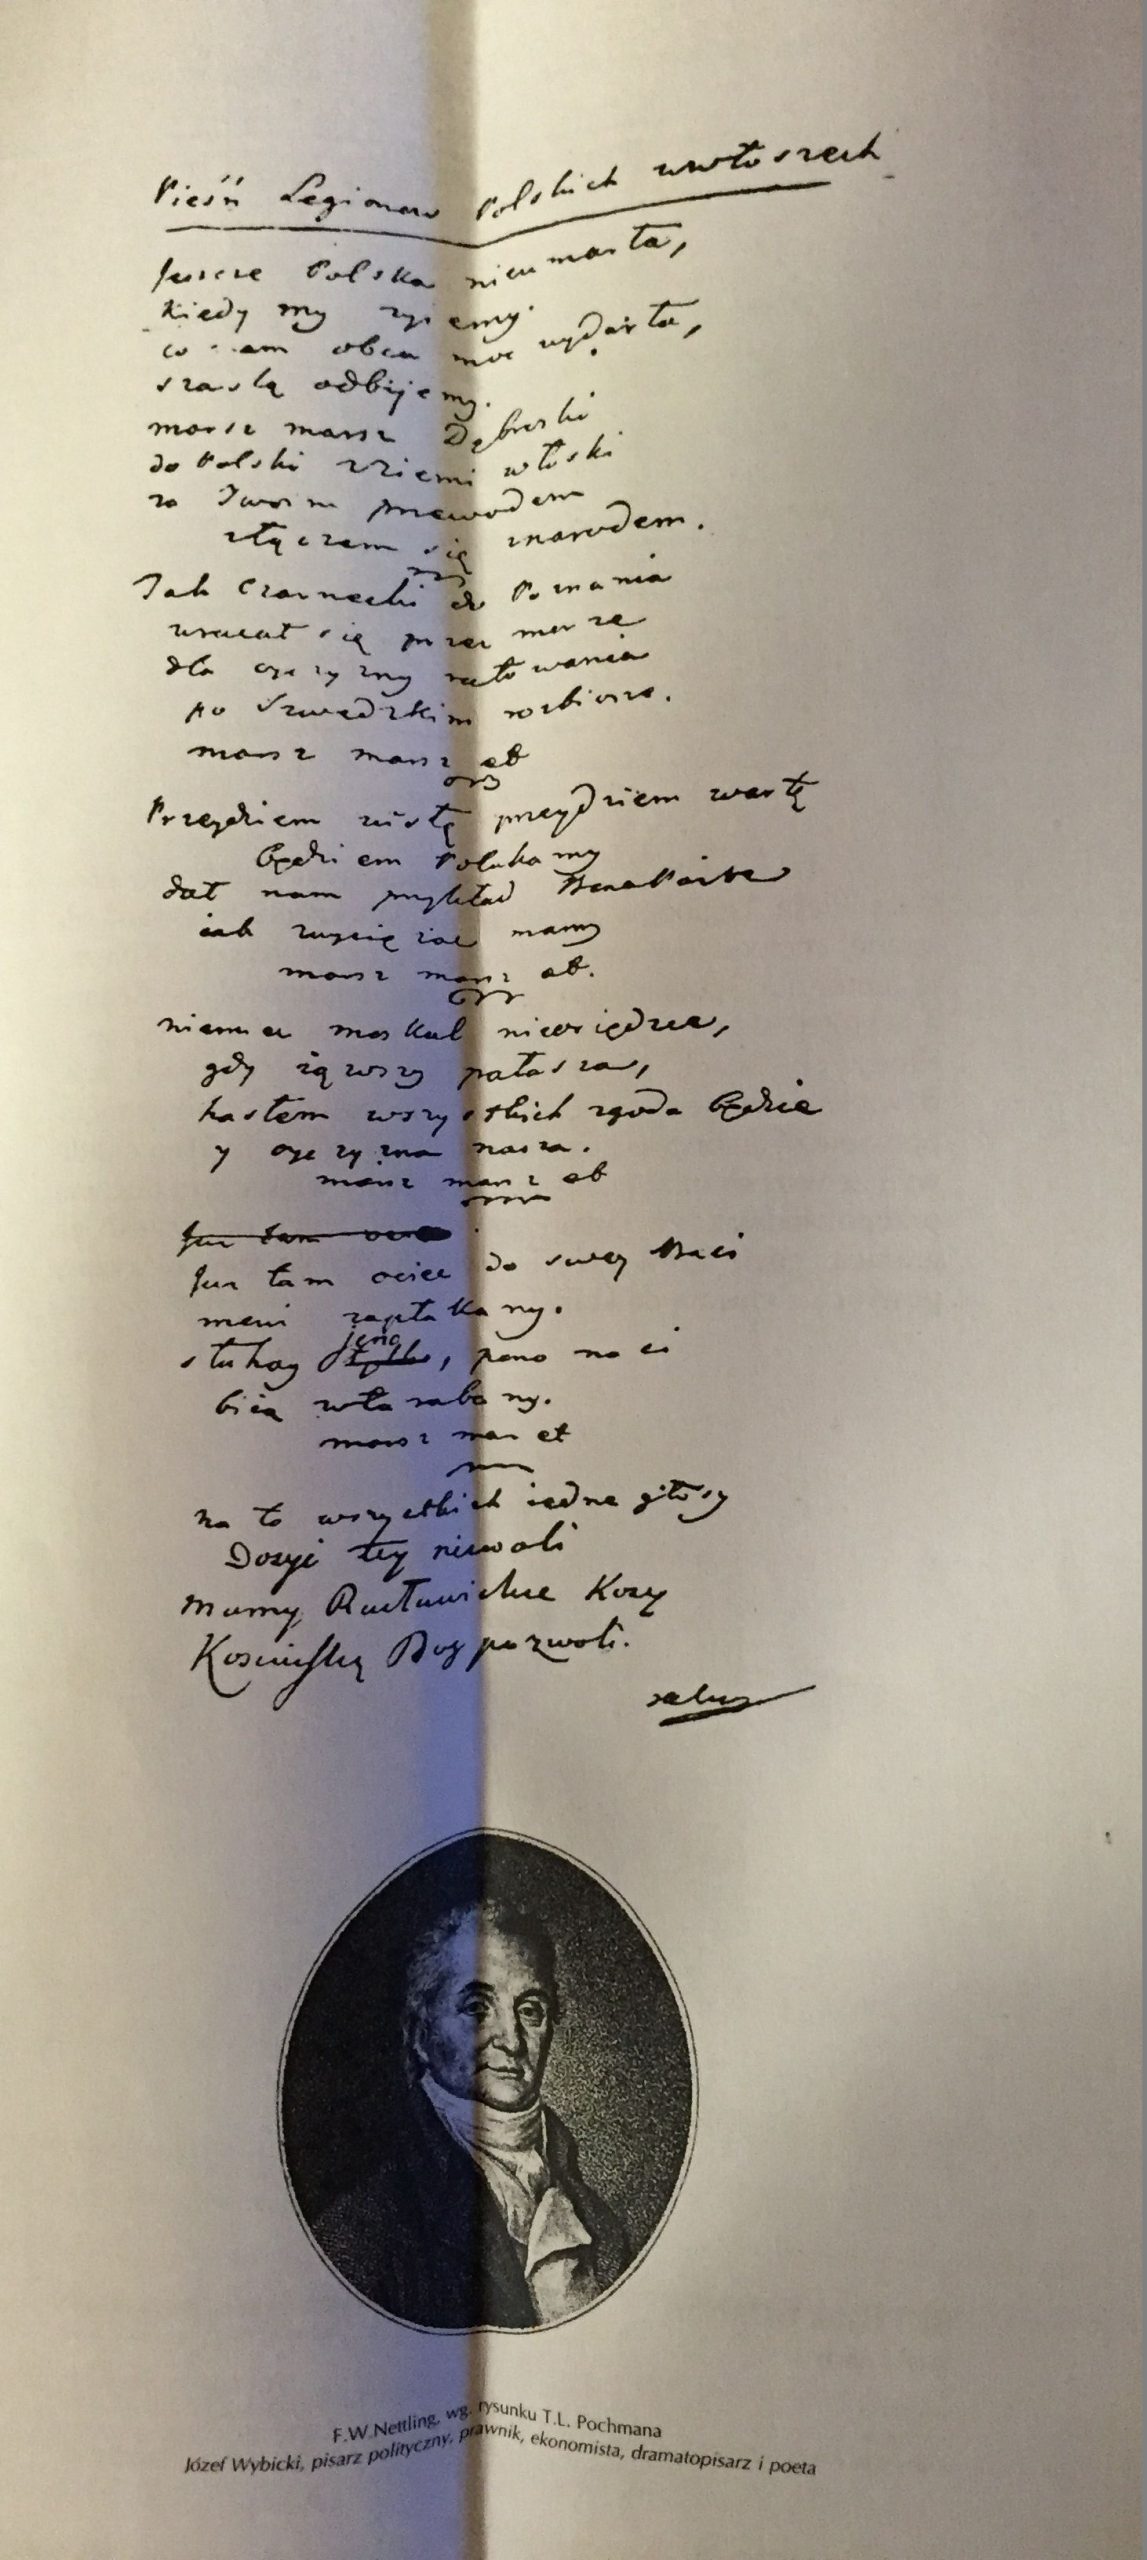 Pieśń Legionow Polskich wewłoszech
Jescze Polska nieumarła,
kiedy my zyiemy.
co nam obca moc wydarła,
szablą odbijemy.
marsz marsz Dąbroski
do Polski zZiemi włoski
za Twoim przewodem
złączem się znarodem.
Jak Czarnecki do Poznania
wracał się przez morze
dla oyczyzny ratowania
po Szwedzkim rozbiorze.
marsz marsz et
Przeydziem wisłę przeydziem wartę
będziem Polakamy
dał nam przykład Bonaparte
iak zwyciężac mamy
marsz marsz et.
niemiec moskal nieosiędzie,
gdy iąwszy pałasza,
hasłem wszystkich zgoda będzie
y oyczyzna nasza.
marsz marsz et
Juz tam
Juz tam ociec do swey Basi
mowi zapłakany.
słuhay jeno, pono nasi
bią wtarabany.
marsz mar et
na to wszystkich iedne głosy
Dosyć tey niewoli
mamy Racławickie Kosy
Kosciuszkę Bog pozwoli.
F.W.Nettling, wg. rysunku T.L. Pochmana
Józef Wybicki, pisarz polityczny, prawnik, ekonomista, dramatopisarz i poeta